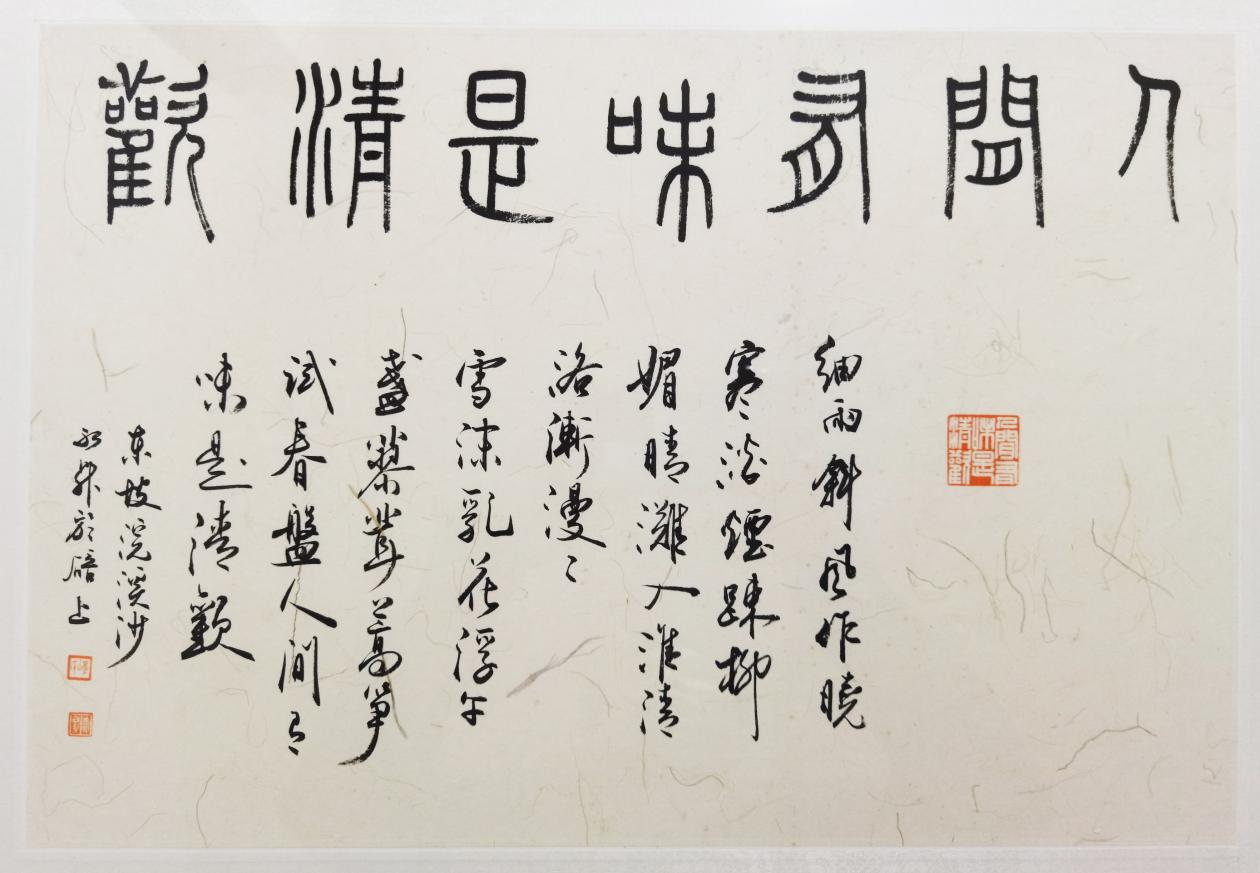 人間有味是清歡
人間有味是清歡
細雨斜風作曉
寒淡煙踈柳
媚晴灘入淮清
洛漸漫〻
雪沫乳花浮午
盞蓼茸蒿笋
試春盤人間有
味是清歡
東坡浣溪沙
上